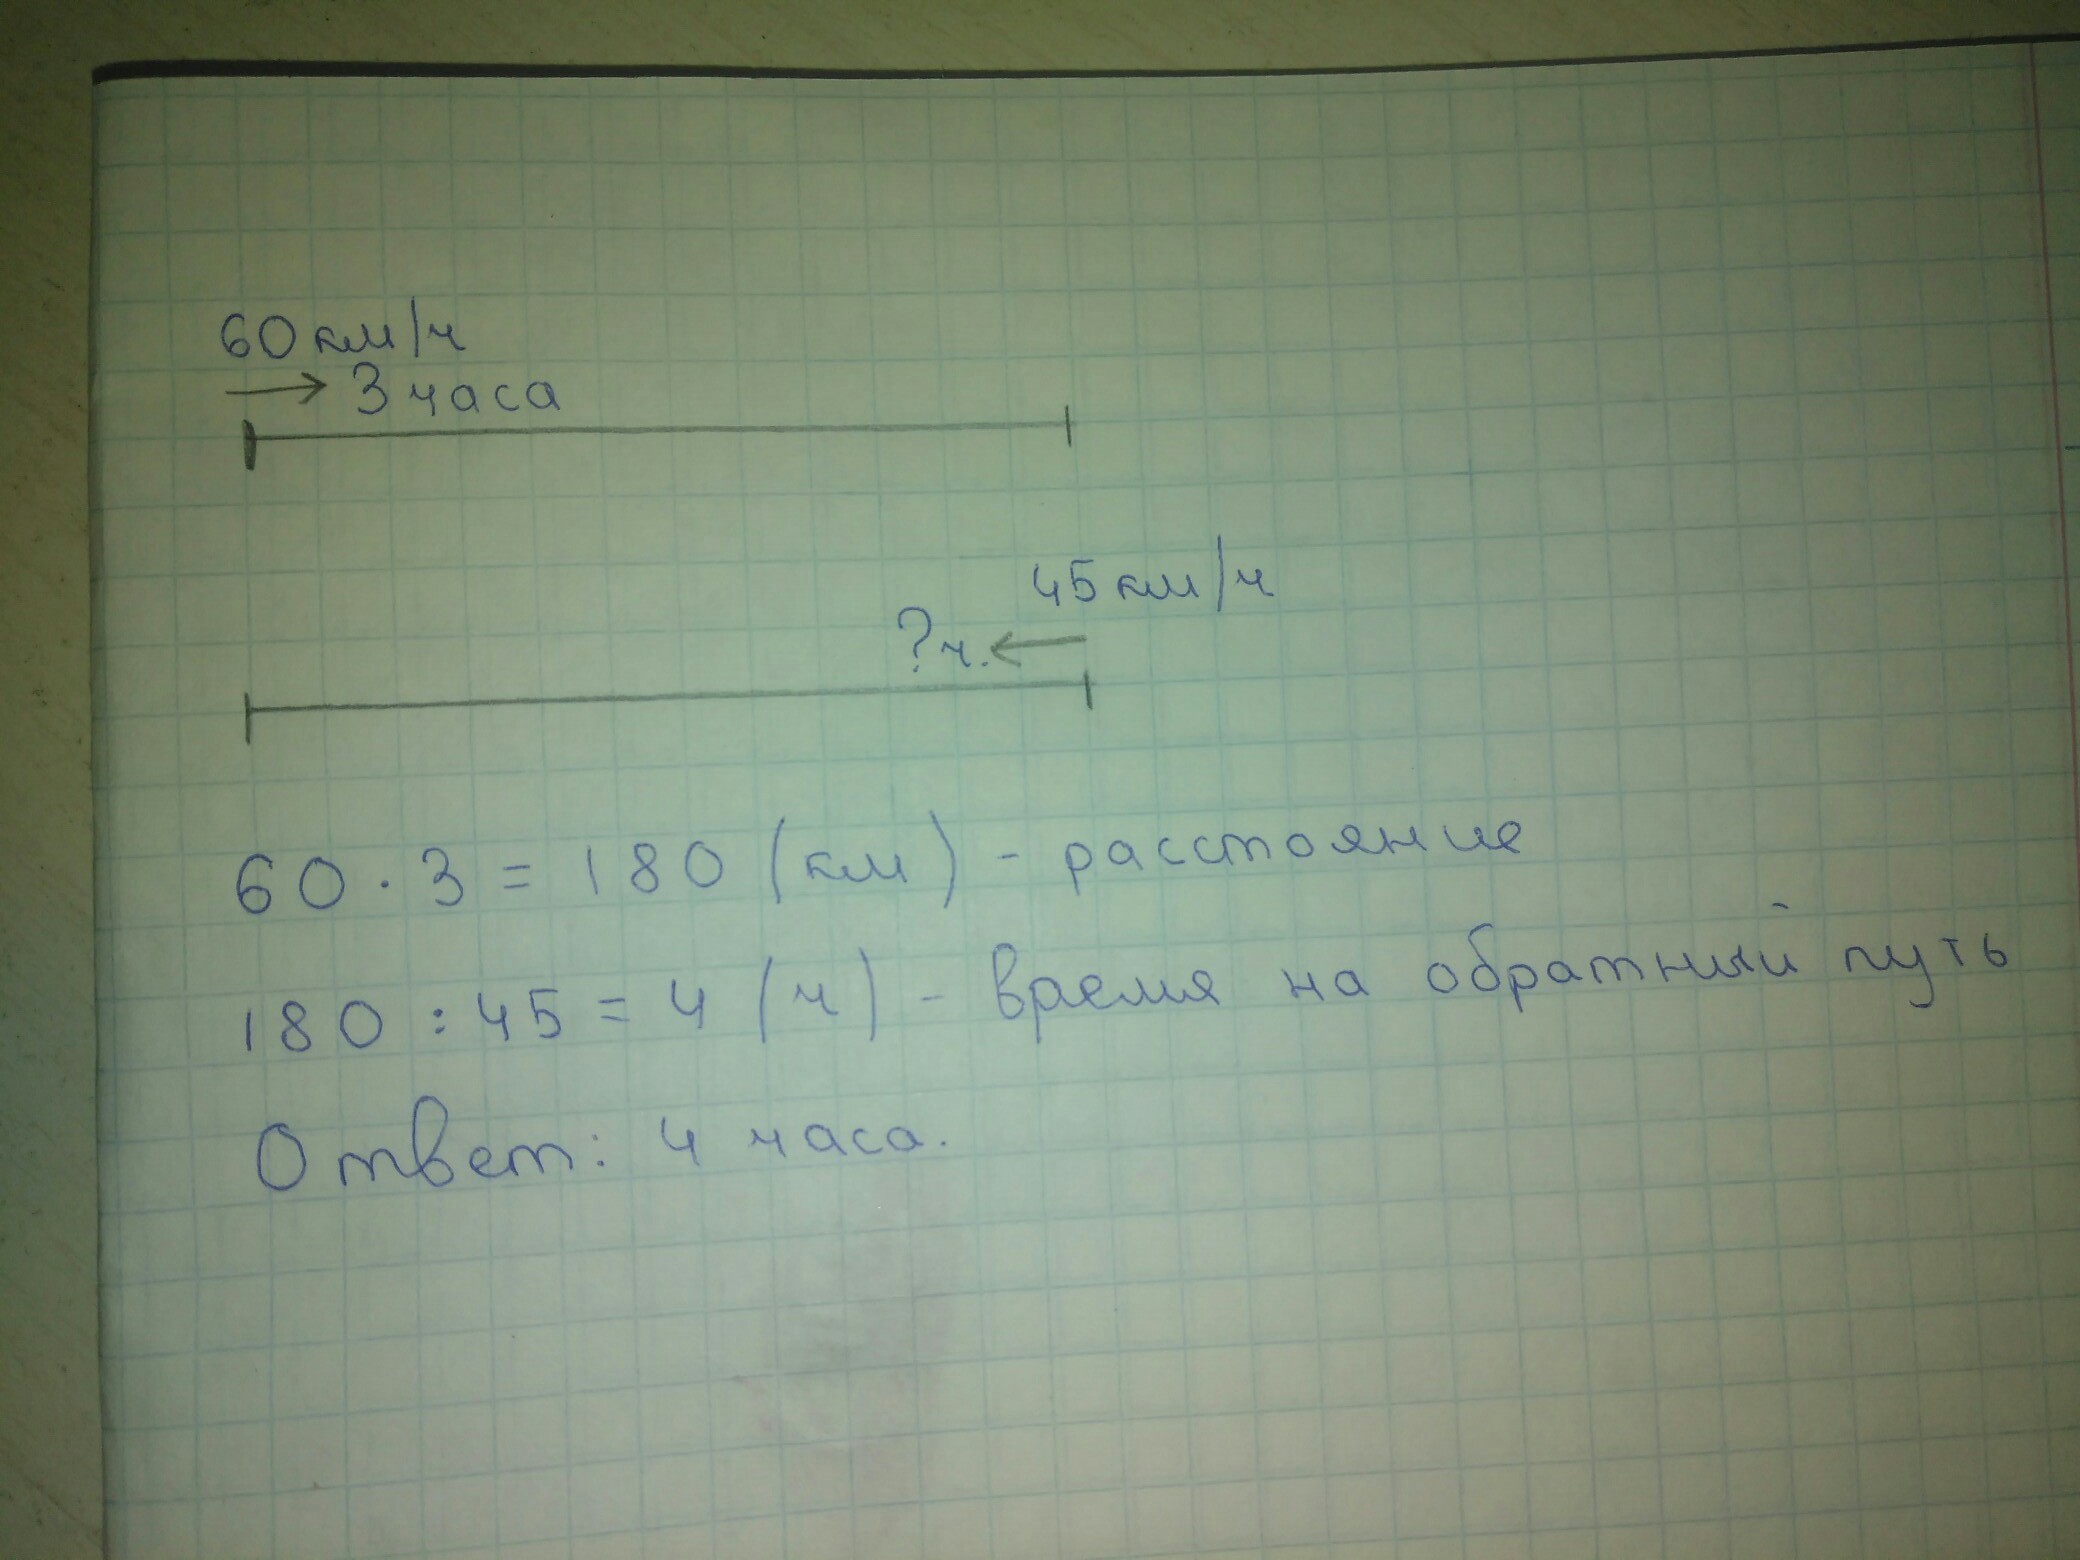 60 км/ч
→ 3 часа
45 км/ч
? ч. ←
60 · 3 = 180 (км) - расстояние
180 : 45 = 4 (ч) - время на обратный путь
Ответ: 4 часа.